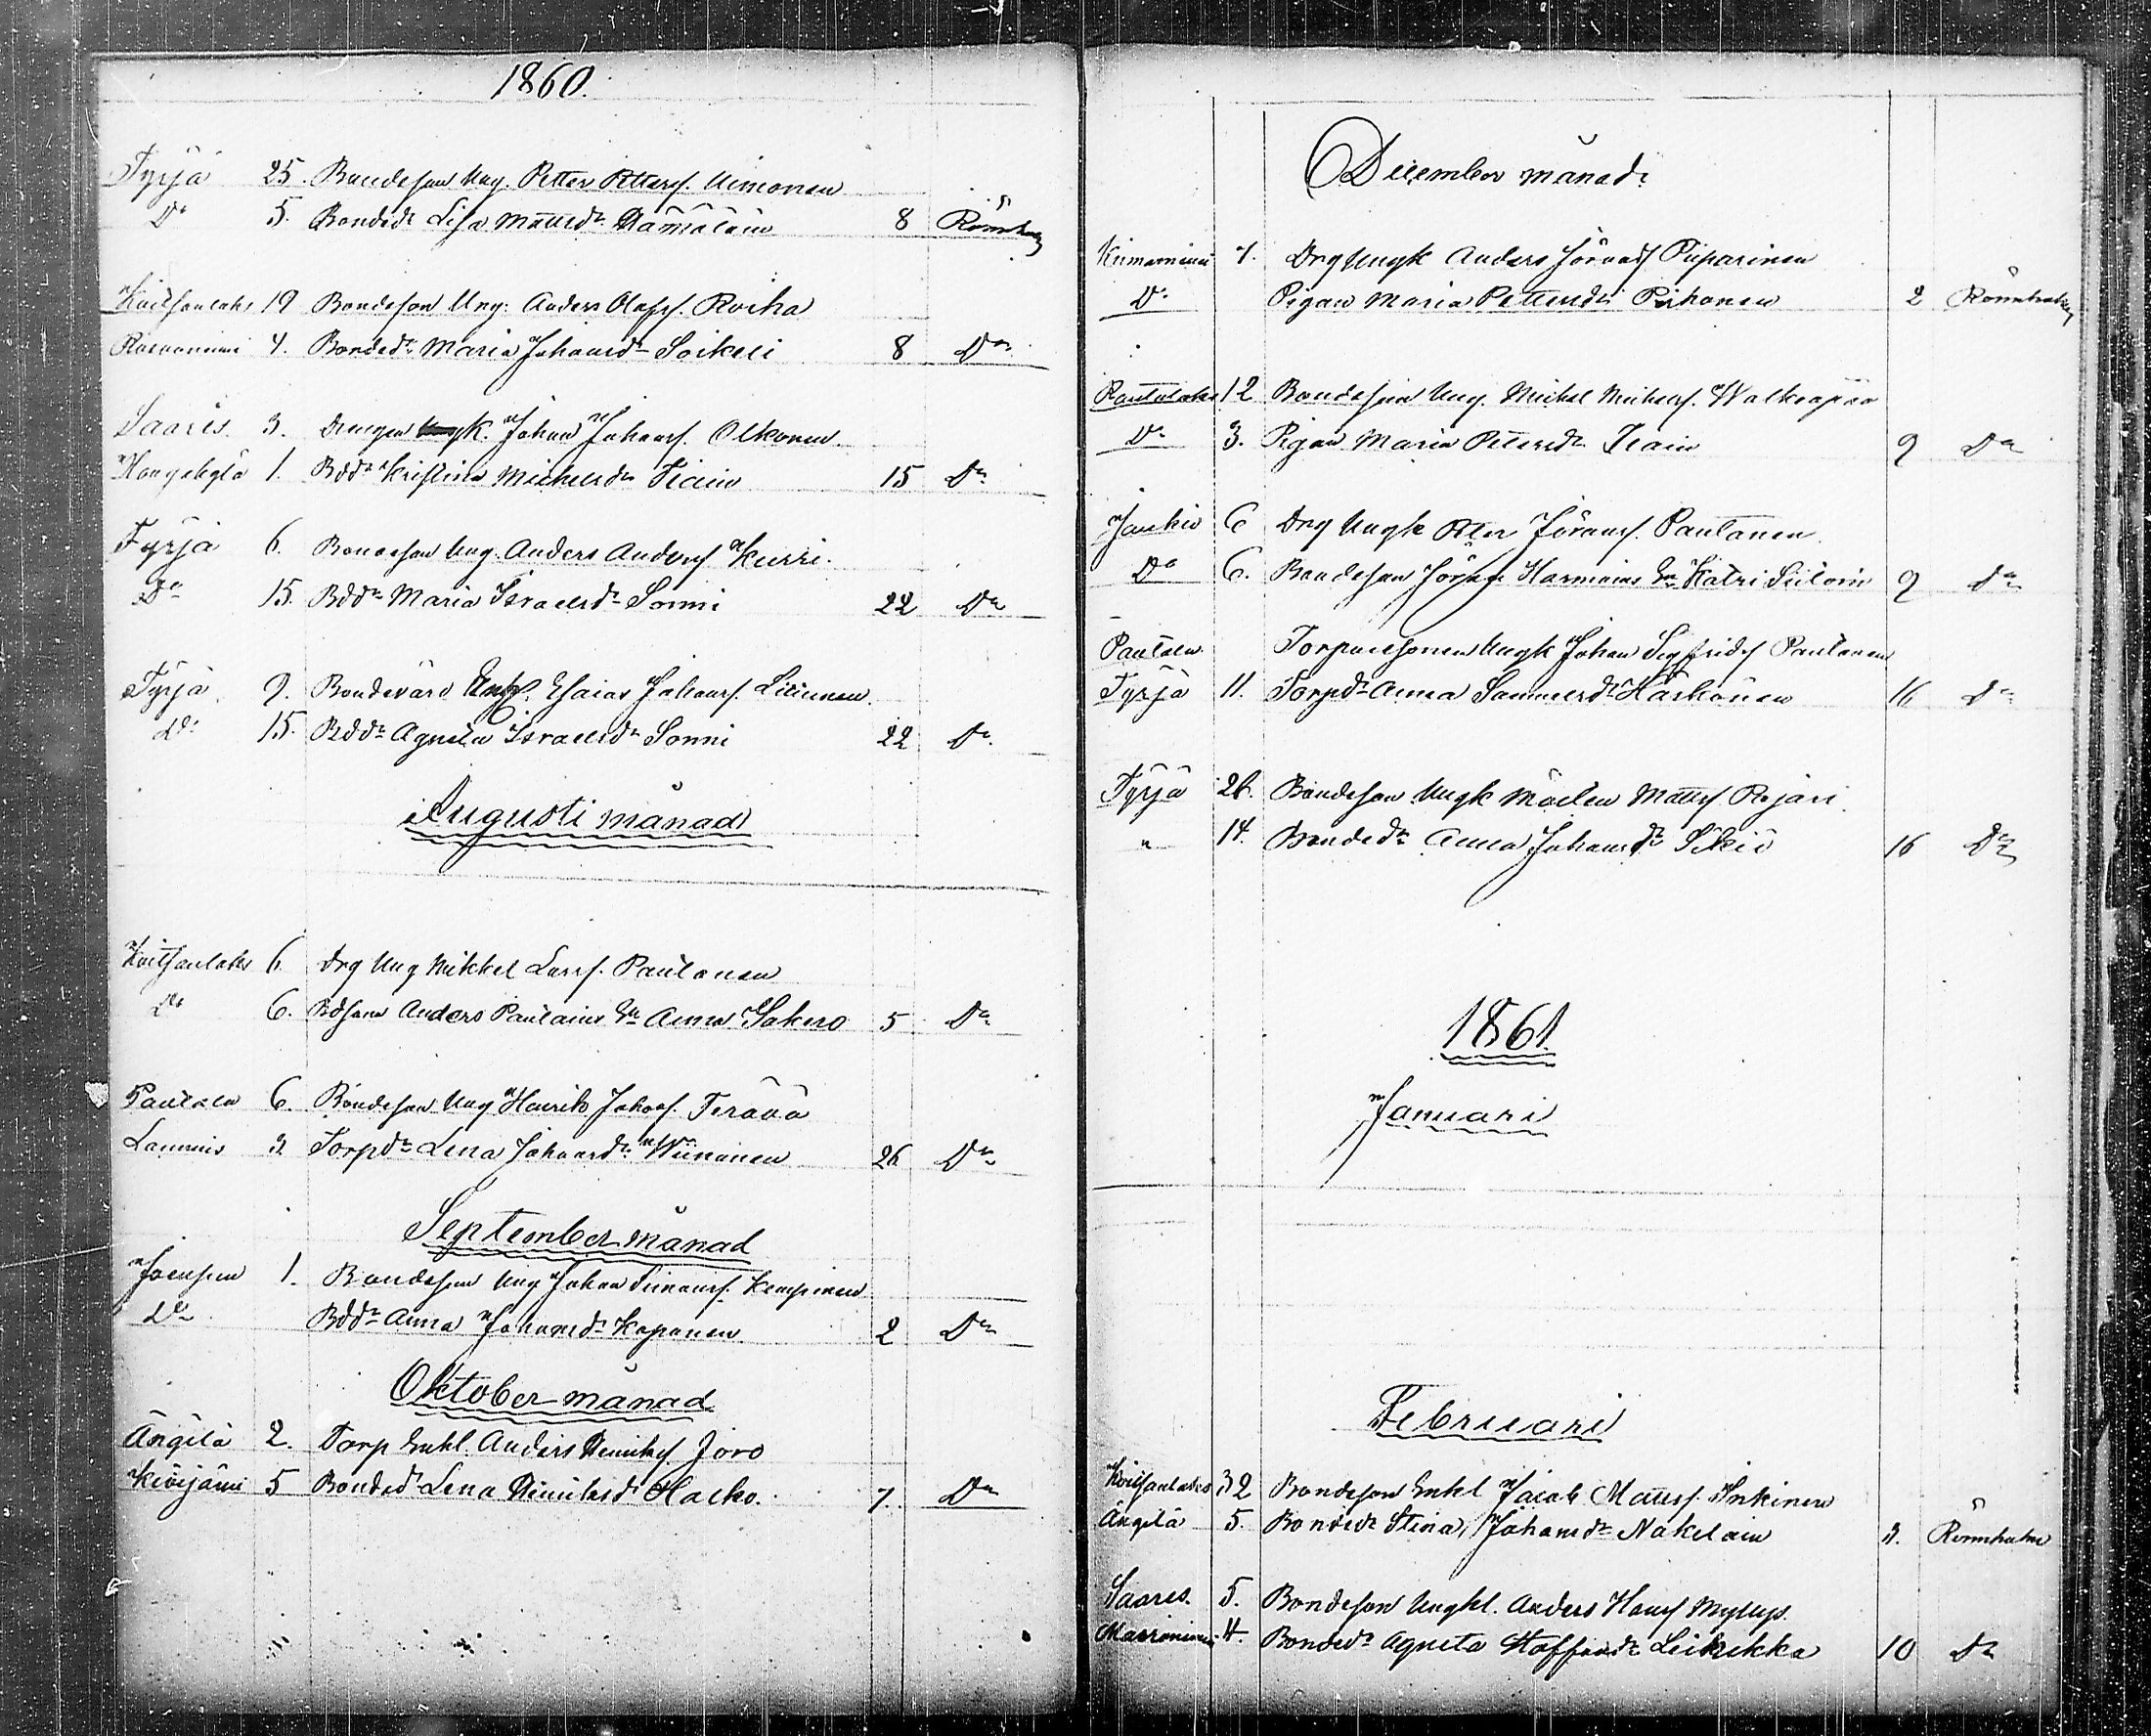 1860.
Tyrjä 25. Bondeson Ung. Petter Petterss. Uimonen
Do 5. Bondedr Lisa Mattsdr Hämäläin 8 Rönnholm
Koitsanlaks 19 Bondeson Ung: Anders Olofss. Roiha
4. Bondedr Maria Johansdr Soikeli 8 Do
Saaris. 3. Drengen Johan Johanss. Olkonen
1. Bddr Kristina Michelsdr Tiain 15 Do
Tyrjä 6. Bondeson Ung. Anders Anderss Kurri.
Do 15. Bddr Maria Israelsdr Sonni 22 Do
Tyrjä 9. Bondevärd Enkl. Esaias Johanss.
Do 15. Bddr Agneta Israelsdr Sonni 22 Do
Augusti månad
Koitsanlaks 6. Drg Ung Mikkel Larss. Pautonen
Do 6. Bdsona Anders En Anna 5 Do
Pautala 6. Bondeson Ung Henrik Johans. Terävä
Lammis 3 Torpdr Lena Johansdr 26 Do
September månad
1. Bondeson Ung Johan Simonss. Kempinen
Do Bddr Anna Johansdr Koponen 2 Do
Oktober månad
Ängilä 2. Torp Enkl. Anders Joro
5 Bondedr Lena Hacko. 7. Do
December månad
4. Drg Ungk Anders Göranss Piiparinen
Do Pigan Maria Pettersdr 2 Rönnholm
Rautalaks 12 Bondeson Ung. Michel Michelss. Walkiapää
Do 3. Pigan Maria Petersdr Tiain 9 Do
Jankis 6 Drg Ungk Petter Göranss. Pautanen
Do 6. Bondeson Enk Katri 9 Do
Pautala Torparesonen Ungk Johan Sigfridss Pautanen
Tyrjä 11. Torpdr Anna Samuelsdr Häskönen 16 Do
Tyrjä 26. Bondeson Ungk Mårten Mattss Rejari
" 14. Bondedr Anna Johansdr Sikiö 16 Do
1861.
Januari
Februari
Koitsanlaks 32 Bondeson Enkl Jacob Mattss. Inkinen
Ängilä 5. Bondedr Stina Johansdr Nokelain 3. Rönnholm
Saares. 5. Bondeson Ungkl. Anders Hanss Myllys.
4. Bondedr Agneta Staffansdr Leikikka 10 Do